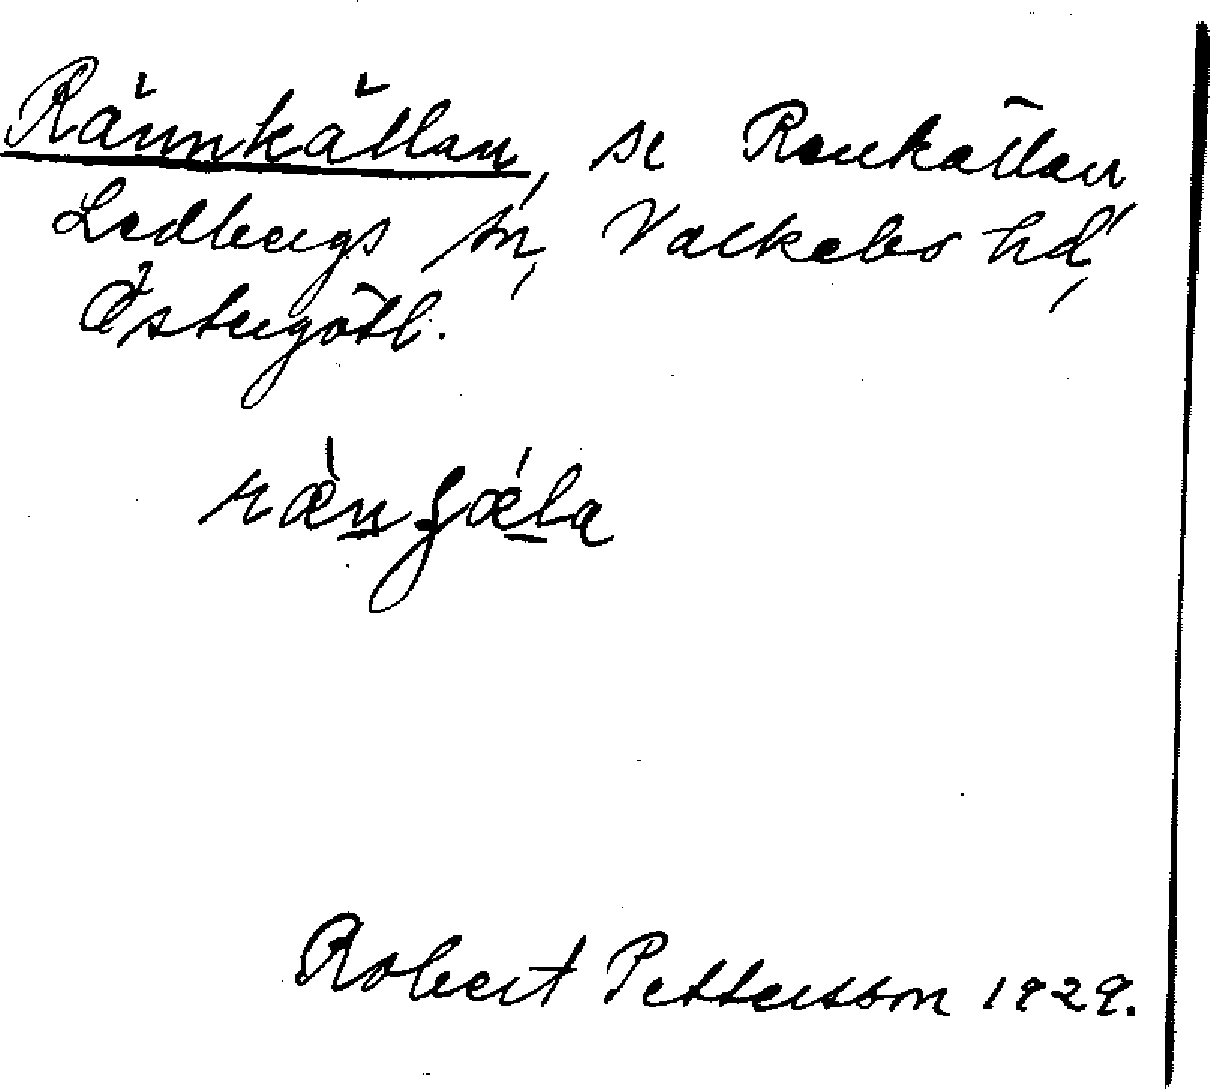 Rännkällan, se Renkällan
Ledbergs sn, Valkebo hd,
Östergötl.
Robert Pettersson 1929.